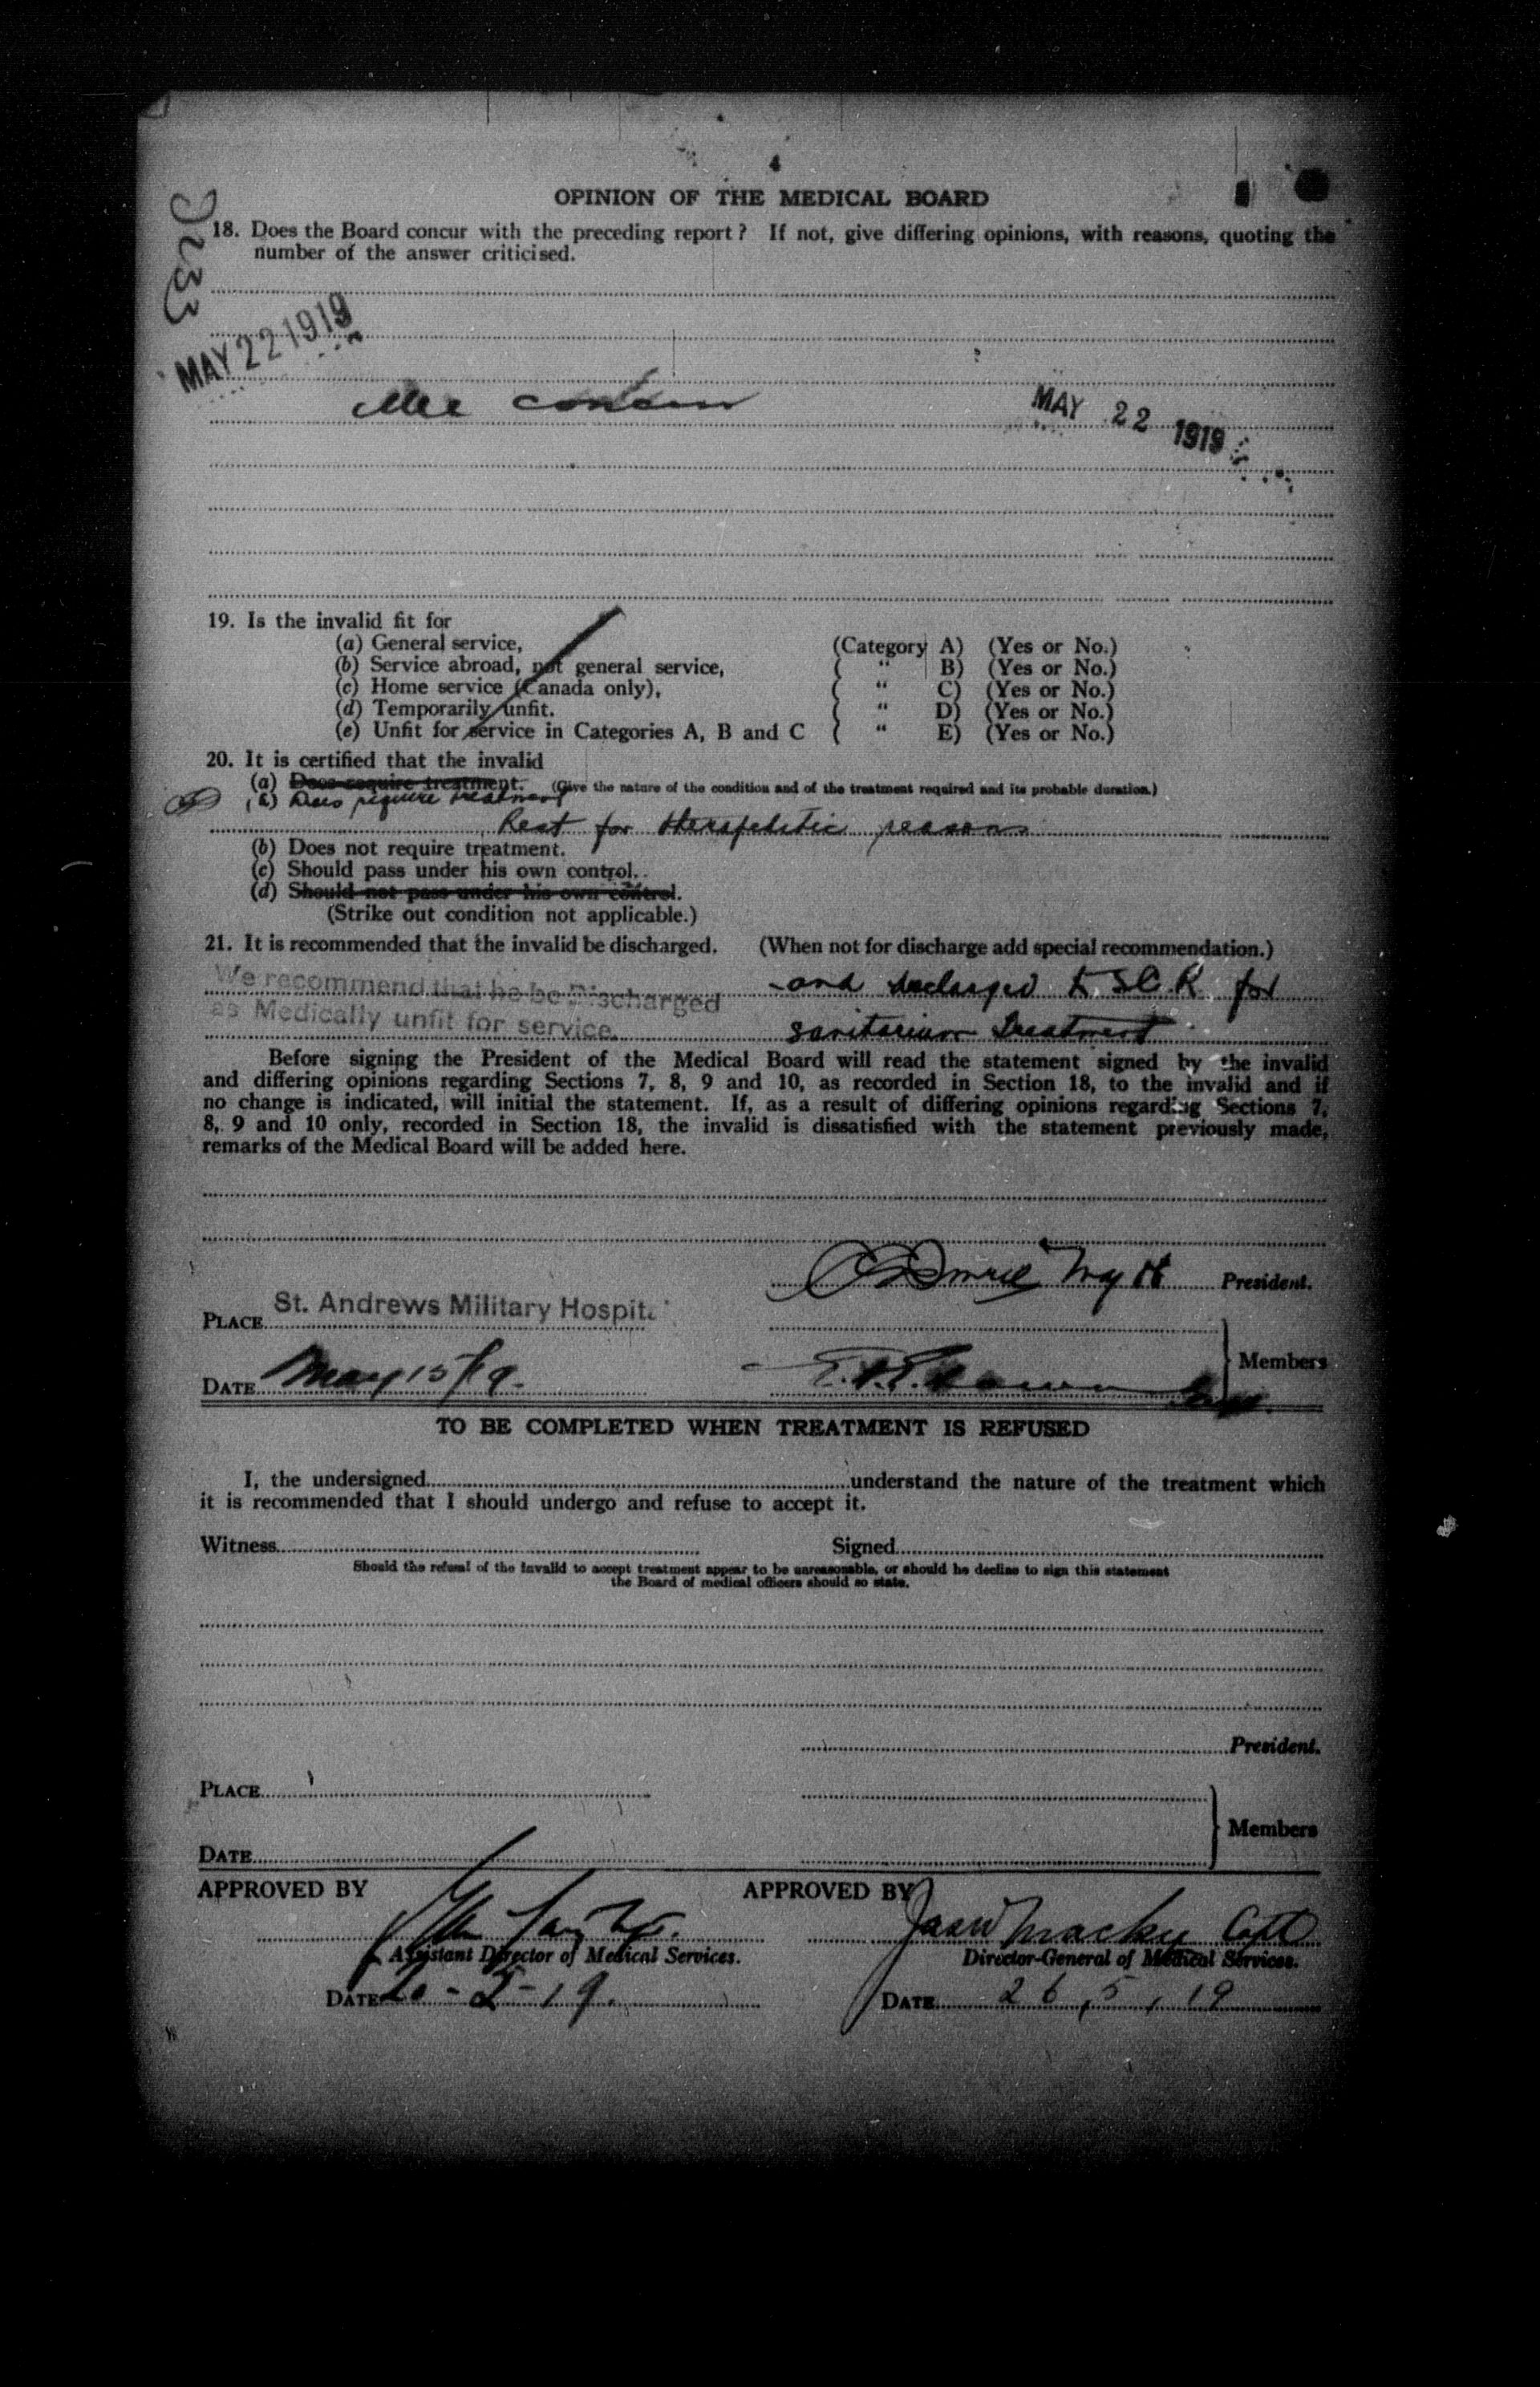 4
OPINION OF THE MEDICAL BOARD
18. Does the Board concur with the preceding report? If not, give differing opinions, with reasons, quoting the
number of the answer criticised.
MAY 22 1919
We concur
MAY 22 1919
19. Is the invalid fit for
(a) General service, (Category A) (Yes or No.)
(b) Service abroad, not general service, ( " B) (Yes or No.)
(c) Home service (Canada only), ( " C) (Yes or No.)
(d) Temporarily unfit. ( " D) (Yes or No.)
(e) Unfit for service in Categories A, B and C ( " E) (Yes or No.)
20. It is certified that the invalid
(a) Does require treatment. (Give the nature of the condition and of the treatment required and its probable duration.)
(a) Does require treatment
Rest for therapeutic reasons
(b) Does not require treatment.
(c) Should pass under his own control.
(d) Should not pass under his own control.
(Strike out condition not applicable.)
21. It is recommended that the invalid be discharged. (When not for discharge add special recommendation.)
We recommend that he be Discharged and discharged to S.C.R for
as Medically unfit for service. sanitarium treatment
Before signing the President of the Medical Board will read the statement signed by the invalid
and differing opinions regarding Sections 7, 8, 9 and 10, as recorded in Section 18, to the invalid and if
no change is indicated, will initial the statement. If, as a result of differing opinions regarding Sections 7,
8, 9 and 10 only, recorded in Section 18, the invalid is dissatisfied with the statement previously made,
remarks of the Medical Board will be added here.
President.
PLACE St. Andrews Military Hospit.
Members
DATE May 15/19.
TO BE COMPLETED WHEN TREATMENT IS REFUSED
I, the undersigned understand the nature of the treatment which
it is recommended that I should undergo and refuse to accept it.
Witness Signed
Should the refusal of the invalid to accept treatment appear to be unreasonable, or should he decline to sign this statement
the Board of medical officers should so state.
President.
PLACE
Members
DATE
APPROVED BY APPROVED BY
Jas W Macky Capt
Assistant Director of Medical Services. Director-General of Medical Services.
DATE 20-5-19. DATE 26, 5, 19